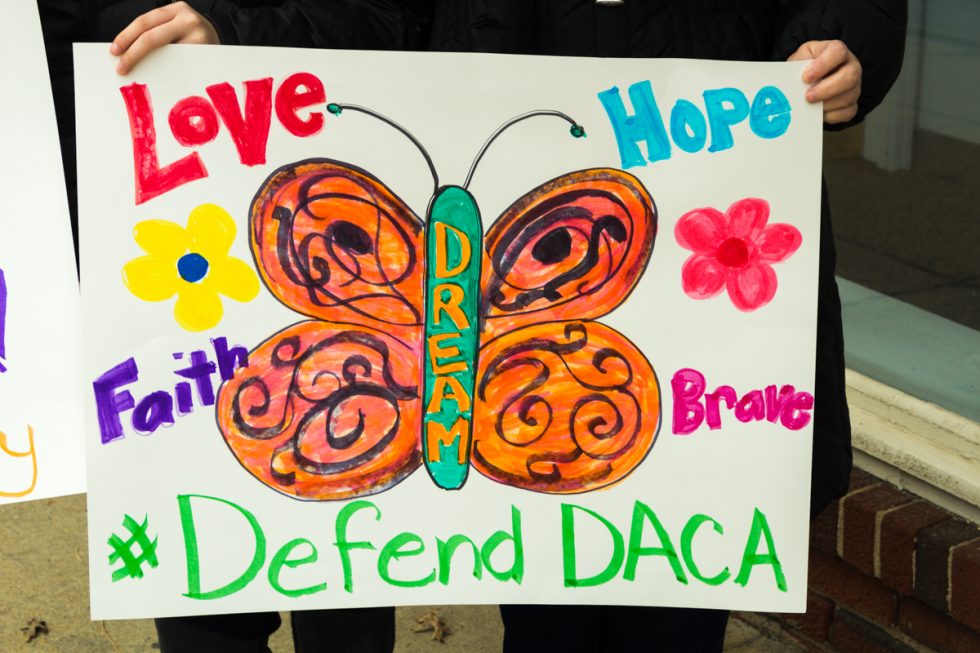 Love
Hope
DREAM
Faith
Brave
#Defend DACA